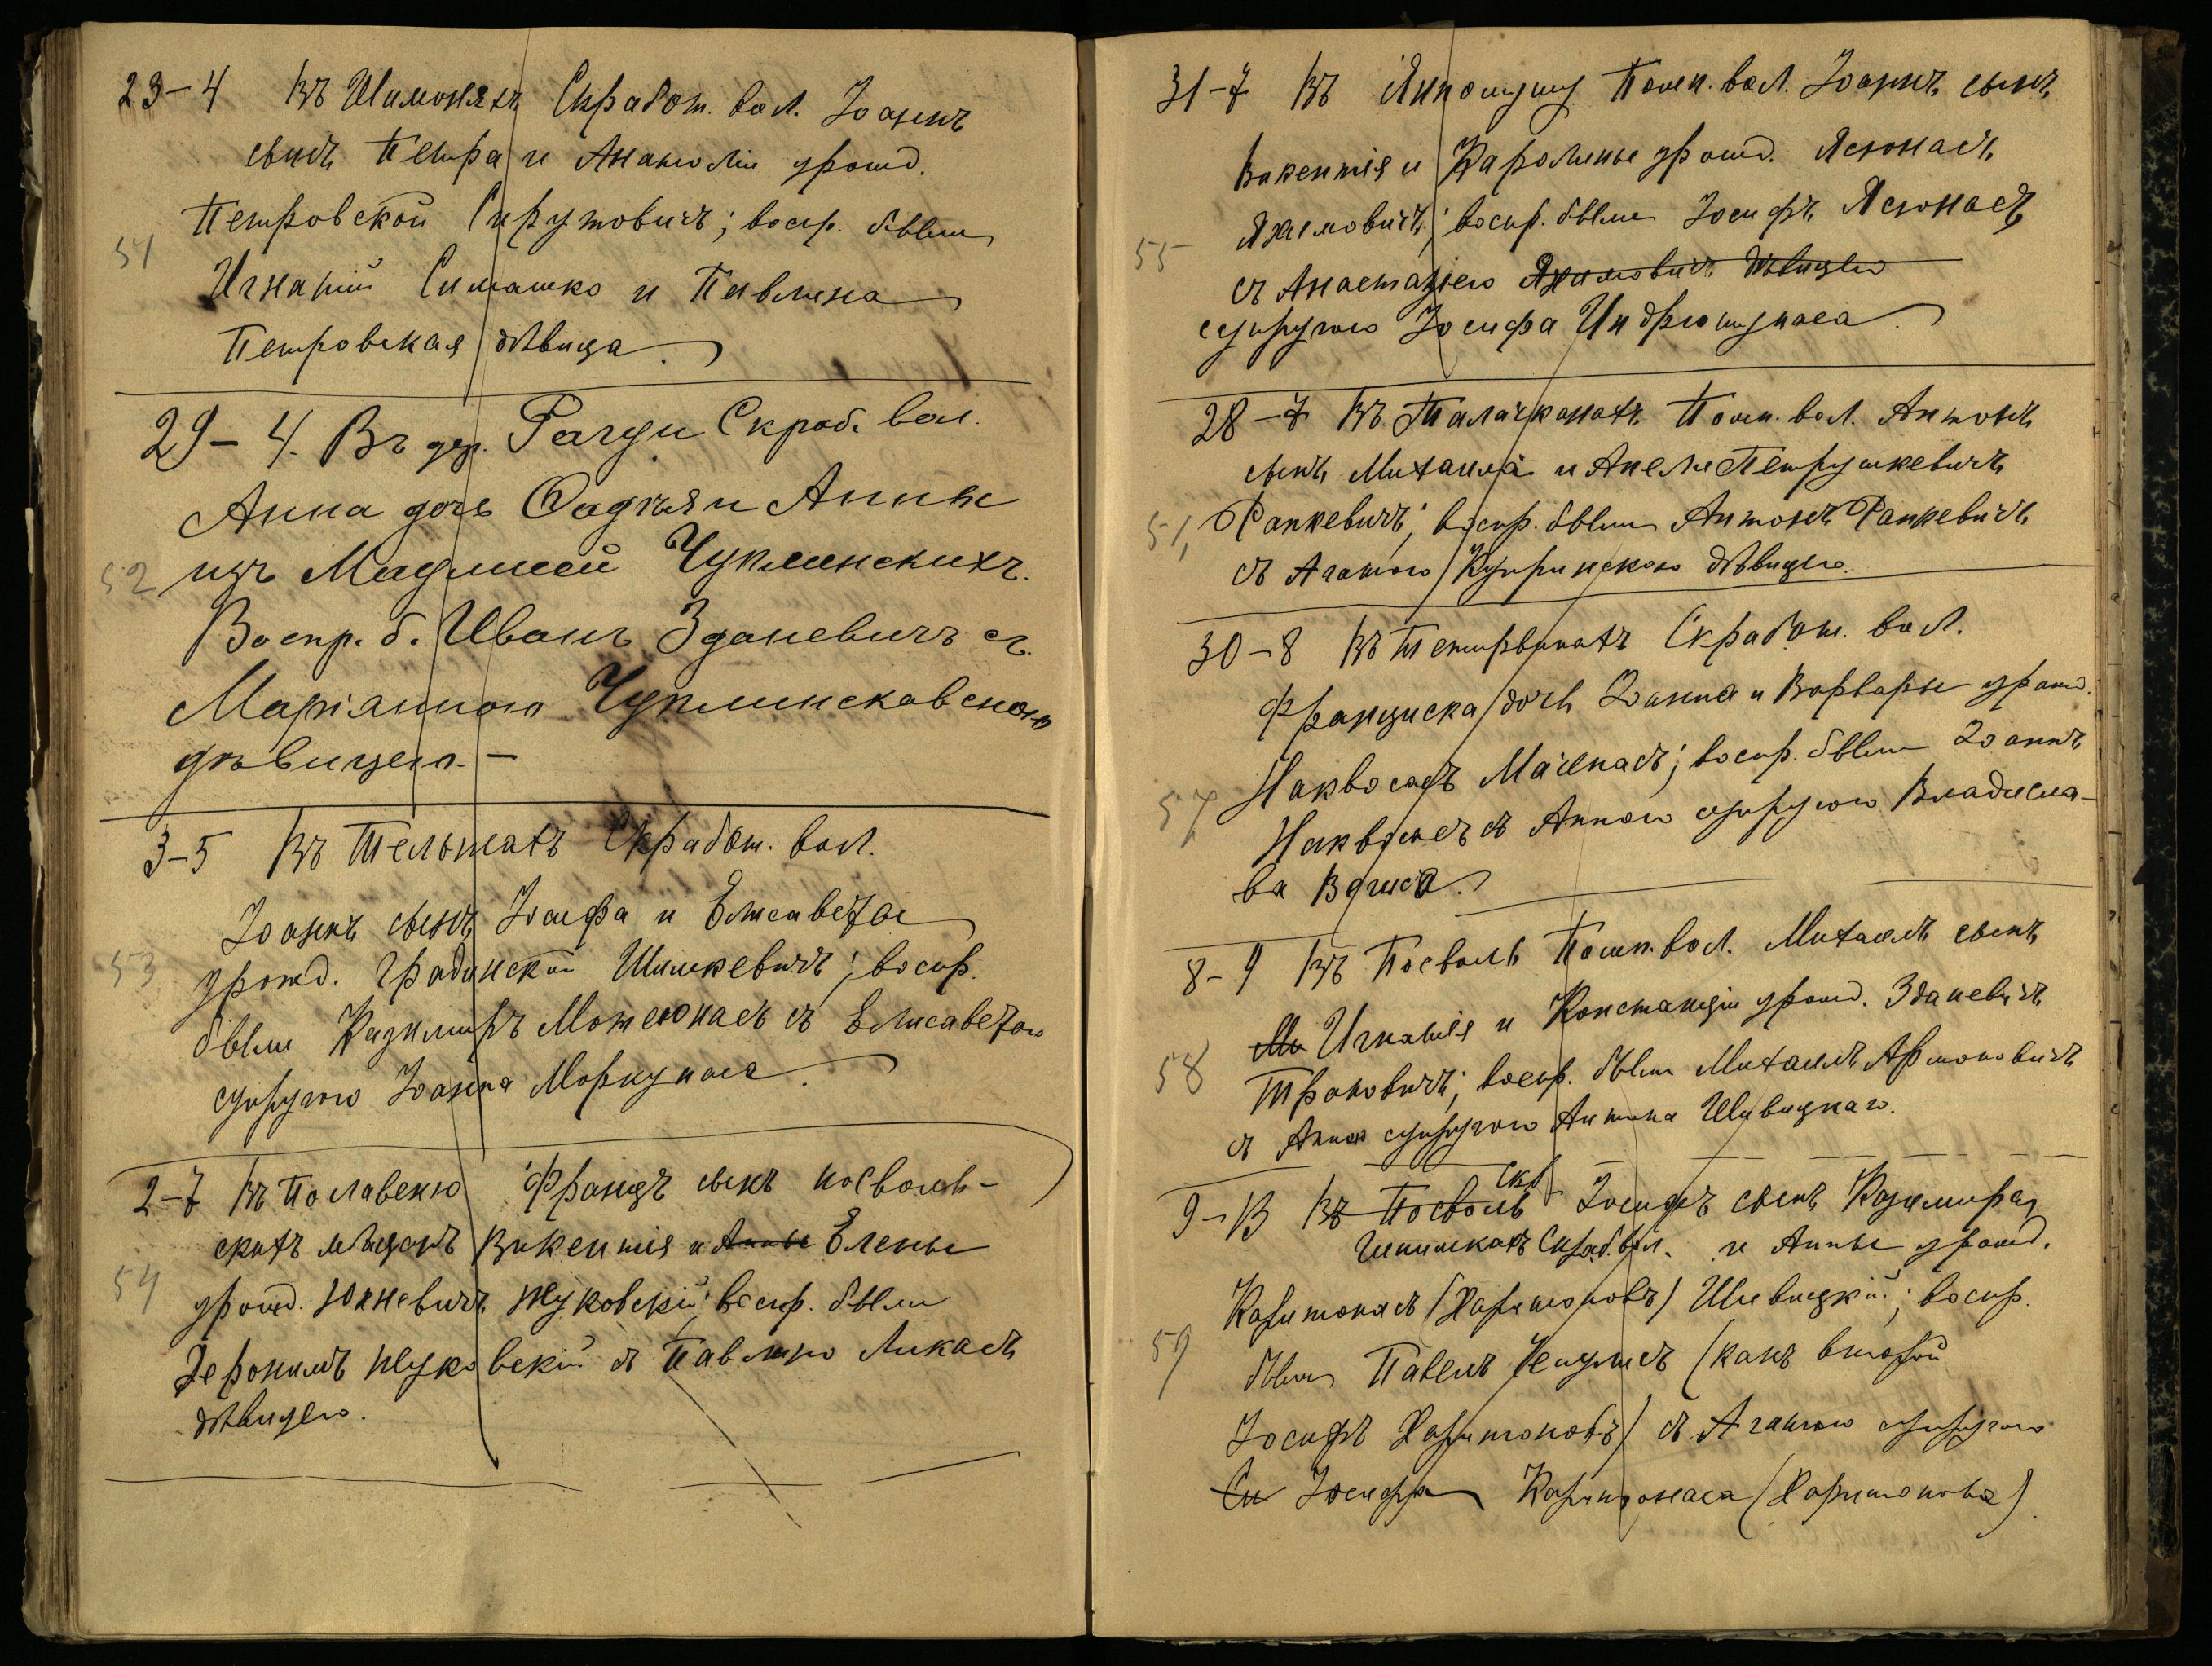 23-4 Въ Шимонях Скработ. вол. Іоаннъ
сынъ Петра и Анатоліи урожд.
Петровской Сирутовичъ; воспр. были
51
Игнатій Симашко и Павлина
Петровская дѣвица.
29-4. Въ дер. Рагуи Скроб. вол.
Анна дочь Фадѣя и Анны
52 изъ Чуплинскихъ.
Воспр. б. Иванъ Здоневичъ съ
Маріанною
дѣвицею.-
3-5 Въ Тельжахъ Скработ. вол.
Іоаннъ сынъ Іосифа и Елисаветы
53 урожд. Градинской Шимкевичъ; воспр.
были Казимиръ Можеюнасъ съ Елисаветою
супругою Іоанна Моркунаса.
2-7 Въ Пославеню Францъ сынъ посволь-
скихъ мѣщанъ Викентія и Анны Елены
54 урожд. Юхневичъ Жуковскій; воспр. были
Іеронимъ Жуковскій съ Павлиною Ликасъ
дѣвицею.
31-7 Въ Помп. вол. Іоаннъ сынъ
Викентія и Каролины урожд. Ясюнасъ
55 воспр. были Іосифъ Ясюнасъ
съ Анастазіею Якимовичъ дѣвицею
супругою Іосифа Индрюшунаса.
28-7 Въ Талачконахъ Помп. вол. Антонъ
сынъ Михаила и Анели Петрушкевичъ
Ранкевичъ; воспр. были Антонъ Ранкевичъ
съ Агатою Купринскою дѣвицею.
30-8 Въ Тетервинахъ Скработ. вол.
Франциска дочь Іоанна и Варвары урожд.
Наквосасъ Маченасъ; воспр. были Іоаннъ
57
Наквосасъ съ Анною супругою Владисла-
ва
8-9 Въ Посволь Помп. вол. Михаилъ сынъ
Ми Игнатія и Констанціи урожд. Зданевичъ
58
Троновичъ; воспр. были Михаилъ Армоновичъ
съ Анною супругою Антона Шивицкаго.
9-13 Въ Посволь Іосифъ сынъ Казимира
Скраб. вол. и Анны урожд.
Каритонасъ (Харитоновъ) Шивицкій; воспр.
59
были Павелъ (какъ второй
Іосифъ Харитоновъ) съ Агатою супругою
Си Іосифа Каритонаса (Харитонова)